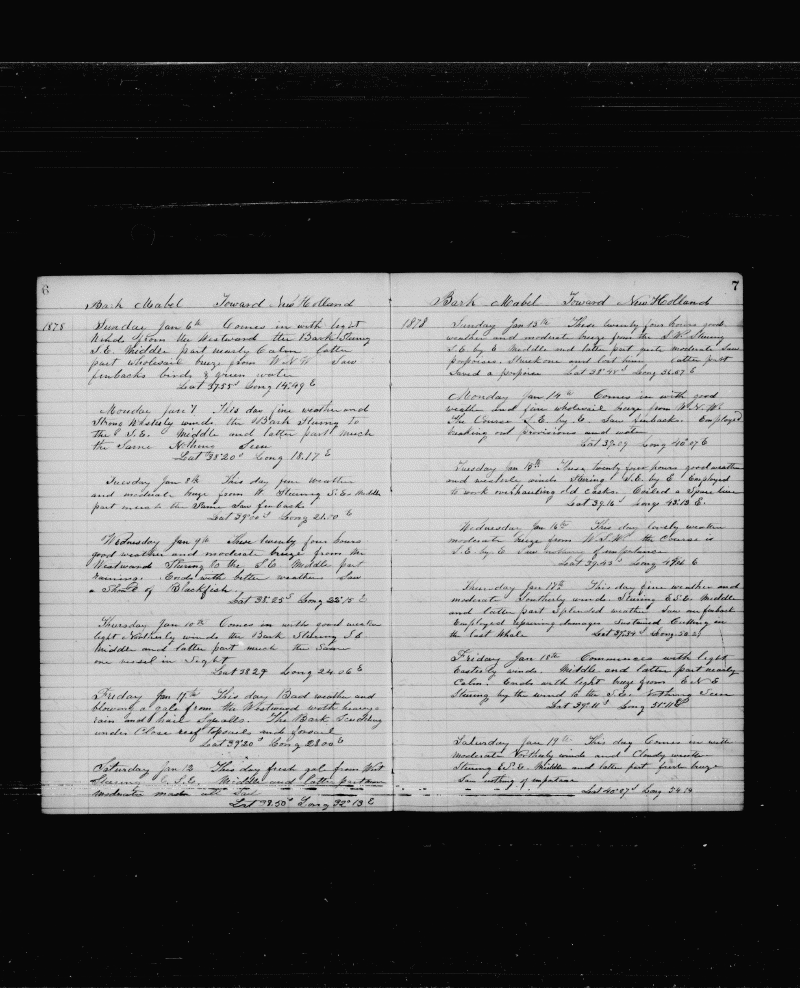 6
Bark Mabel Toward New Holland
1878 Sunday Jan 6th Comes in with light
winds from the Westward the Bark Stering
S.E. Middle part nearly Calm latter
part wholesail breeze from W.N.W. Saw
finbacks birds & green water
Lat 37.55 S Long 14.49 E
Monday Jan 7 This day fine weather and
Strong Westerly winds the Bark Stering to
the S.E. Middle and latter part much
the Same Nothing Seen
Lat 38.20 S Long 18.17 E
Tuesday Jan 8th This day fine weather
and moderate breeze from W. Stering S.E. Middle
part much the Same Saw finbacks
Lat 39.00 S Long 21.50 E
Wednesday Jan 9th These twenty four hours
good weather and moderate breeze from the
Westward Stering to the S.E. Middle part
raining Ends with better weather Saw
a Shoal of Blackfish
Lat 38.25 S Long 22.15 E
Thursday Jan 10th Comes in with good weather
light Notherly winds the Bark Stering S E
Middle and latter part much the Same
one vessel in Sight
Lat 38 29 Long 24.06 E
Friday Jan 11th This day Bad weather and
blowing a gale from the Westward with heavy
rain and hail Squalls. The Bark Scudding
under Close reef topsails and foresail
Lat 39.20 S Long 28.00 E
Saturday Jan 12 This day fresh gale from West
Stering S.E. Middle and latter part more
moderate made all Sail
Lat 38.50 S Long 32.13 E
7
Bark Mabel Toward New Holland
1878 Sunday Jan 13th These twenty four hours good
weather and moderate breeze from the S.W. Stering
S.E. by E Middle and latter part quite moderate Saw
porpoises. Struck one and lost him latter part
Saved a porpoise Lat 38.45 S Long 36.07 E
Monday Jan 14th Comes in with good
weather and fine wholesail breeze from W.N.W.
The Course S.E. by E. Saw finbacks. Employed
breaking out provisions and water
Lat 39.09 Long 40.07 E
Tuesday Jan 15th These twenty four hours good weather
and westerly winds Stering S.E. by E Employed
to work overhauling old casks. Coiled a Spare line
Lat 39.16 S Long 43.13 E.
Wednesday Jan 16th This day lovely weather
moderate breeze from W.S.W. the Course is
S.E. by E Saw nothing of importance
Lat 39.43 S Long E
Thursday Jan 17th This day fine weather and
moderate Southerly winds Stering E.S.E. Middle
and latter part Splended weather Saw one finback
Employed repairing damages Sustained Cutting in
the last Whale Lat 39.34 S Long 50.2
Friday Jan 18th Commences with light
Easterly winds. Middle and latter part nearly
Calm. Ends with light breeze from E N E
Stering by the wind to the S.E. Nothing Seen
Lat 39.11 S Long 51.11 E
Saturday Jan 19th. This day Comes in with
moderate Notherly winds and Cloudy weather
Stering E.S.E. Middle and latter part fresh breeze
Saw nothing of importance
Lat 40.07 S Long 54.14